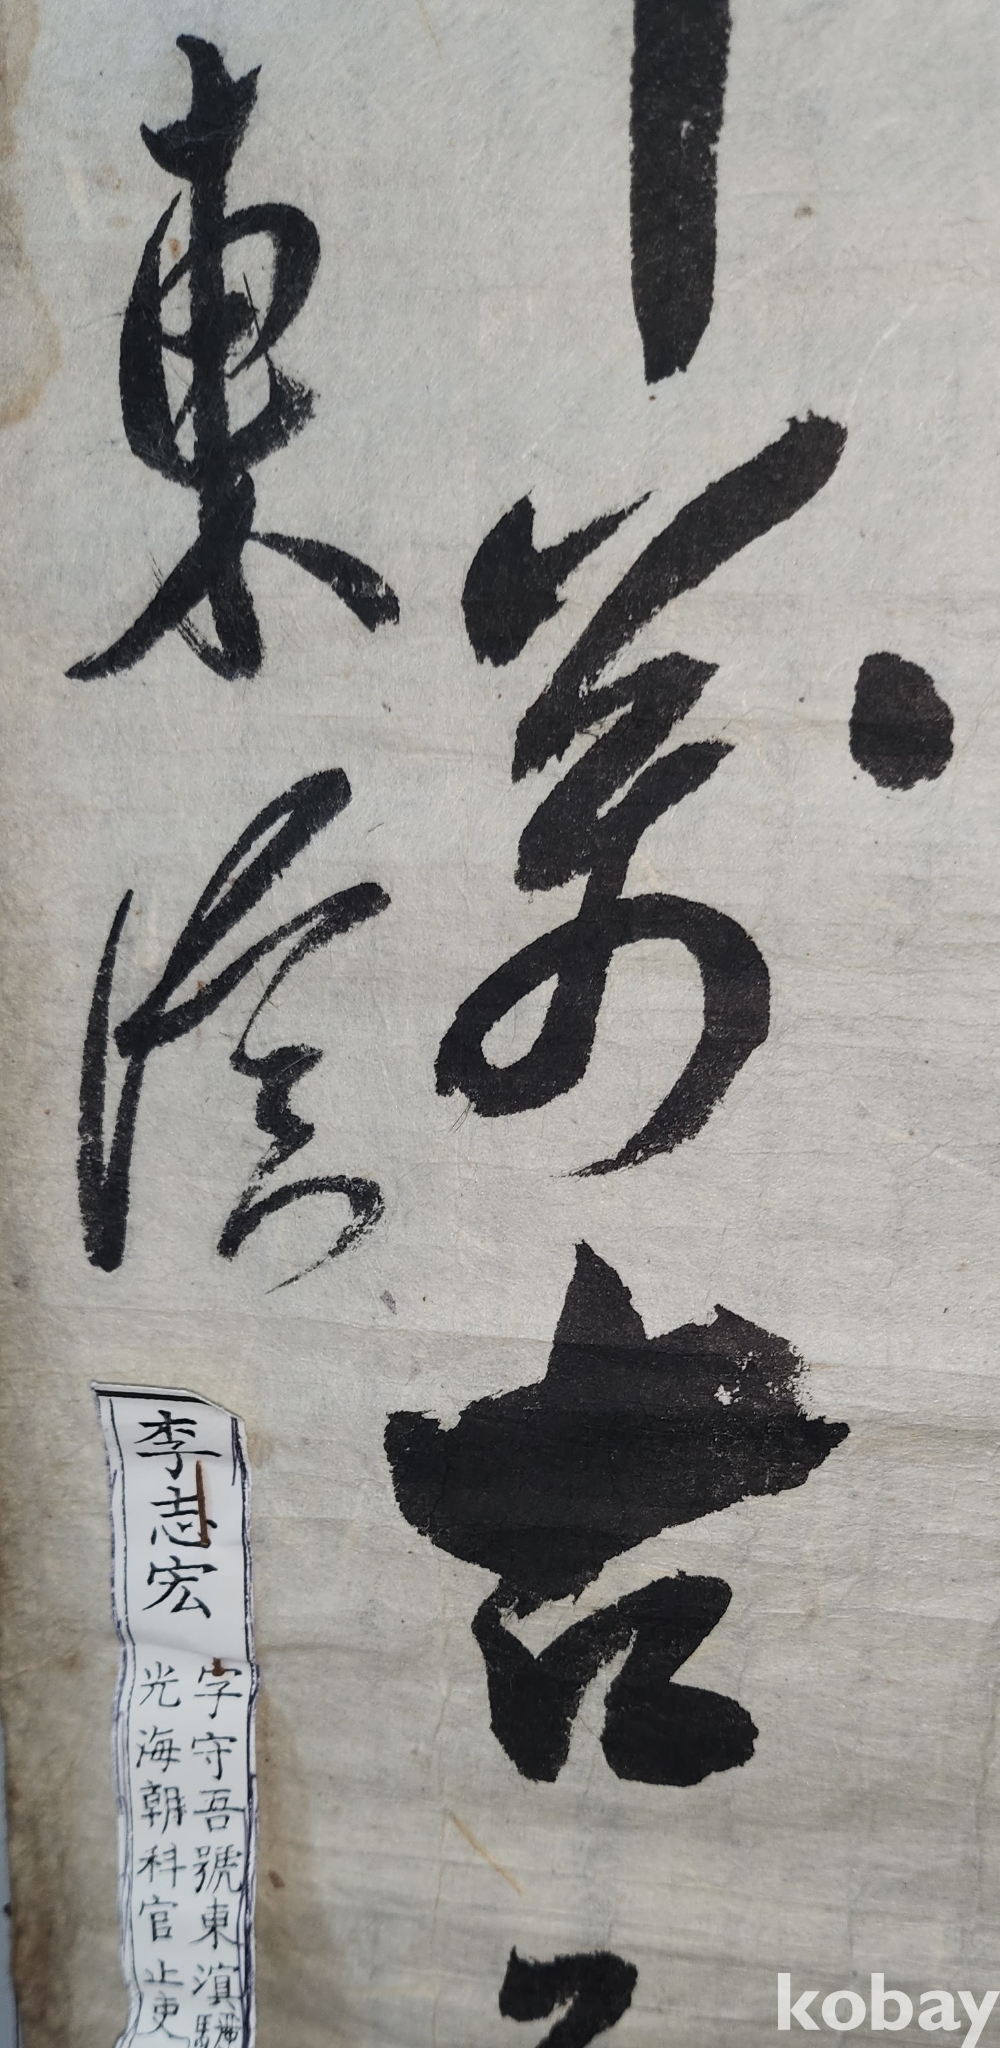 萬古
東
李志宏
字守吾號東滇驪
光海朝科官止吏
kobay